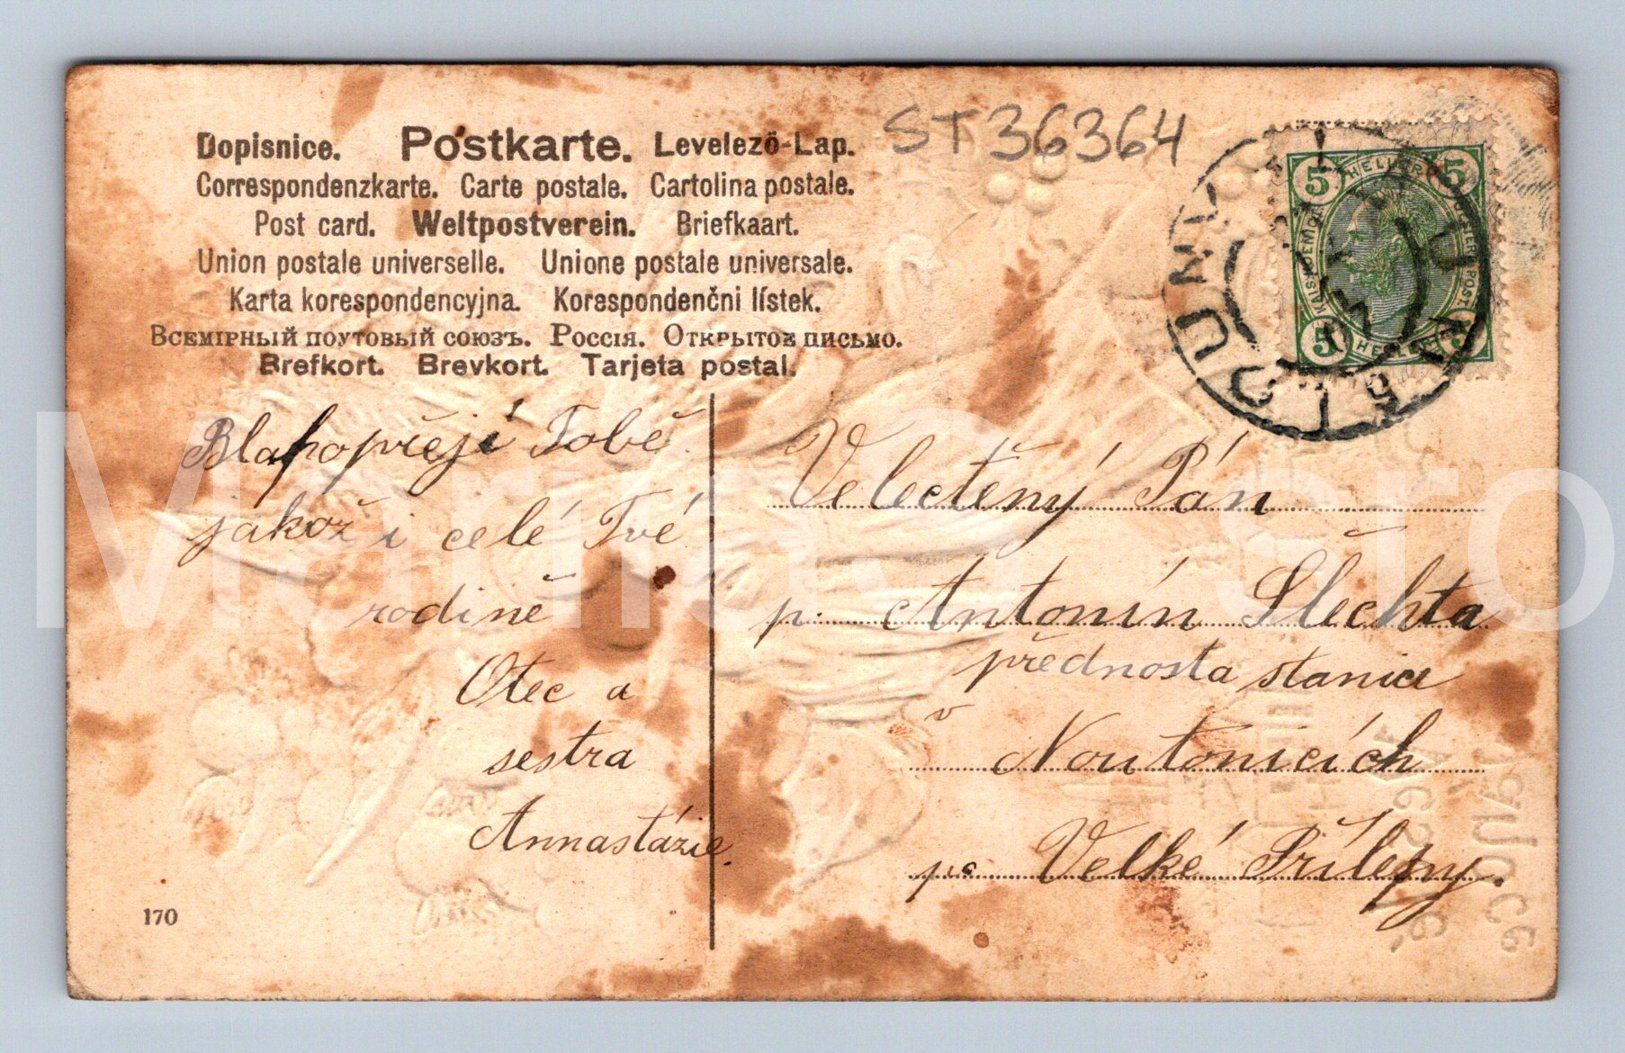 ST36364
Dopisnice. Postkarte. Levelező-Lap.
Correspondenzkarte. Carte postale. Cartolina postale.
Post card. Weltpostverein. Briefkaart.
Union postale universelle. Unione postale universale.
Karta korespondencyjna. Korespondenčni lístek.
Всемірный поутовый союзъ. Россія. Открытое письмо.
Brefkort. Brevkort. Tarjeta postal.
5 HELLER 5
5 HELLER 5
Blahopřeji Tobě
jakož i celé Tvé
rodině
Otec a
sestra
Annastázie.
Velectěný Pán
p. Antonín Šlechta
přednosta stanice
v Noutonicích
pc Velké Přílepy.
170